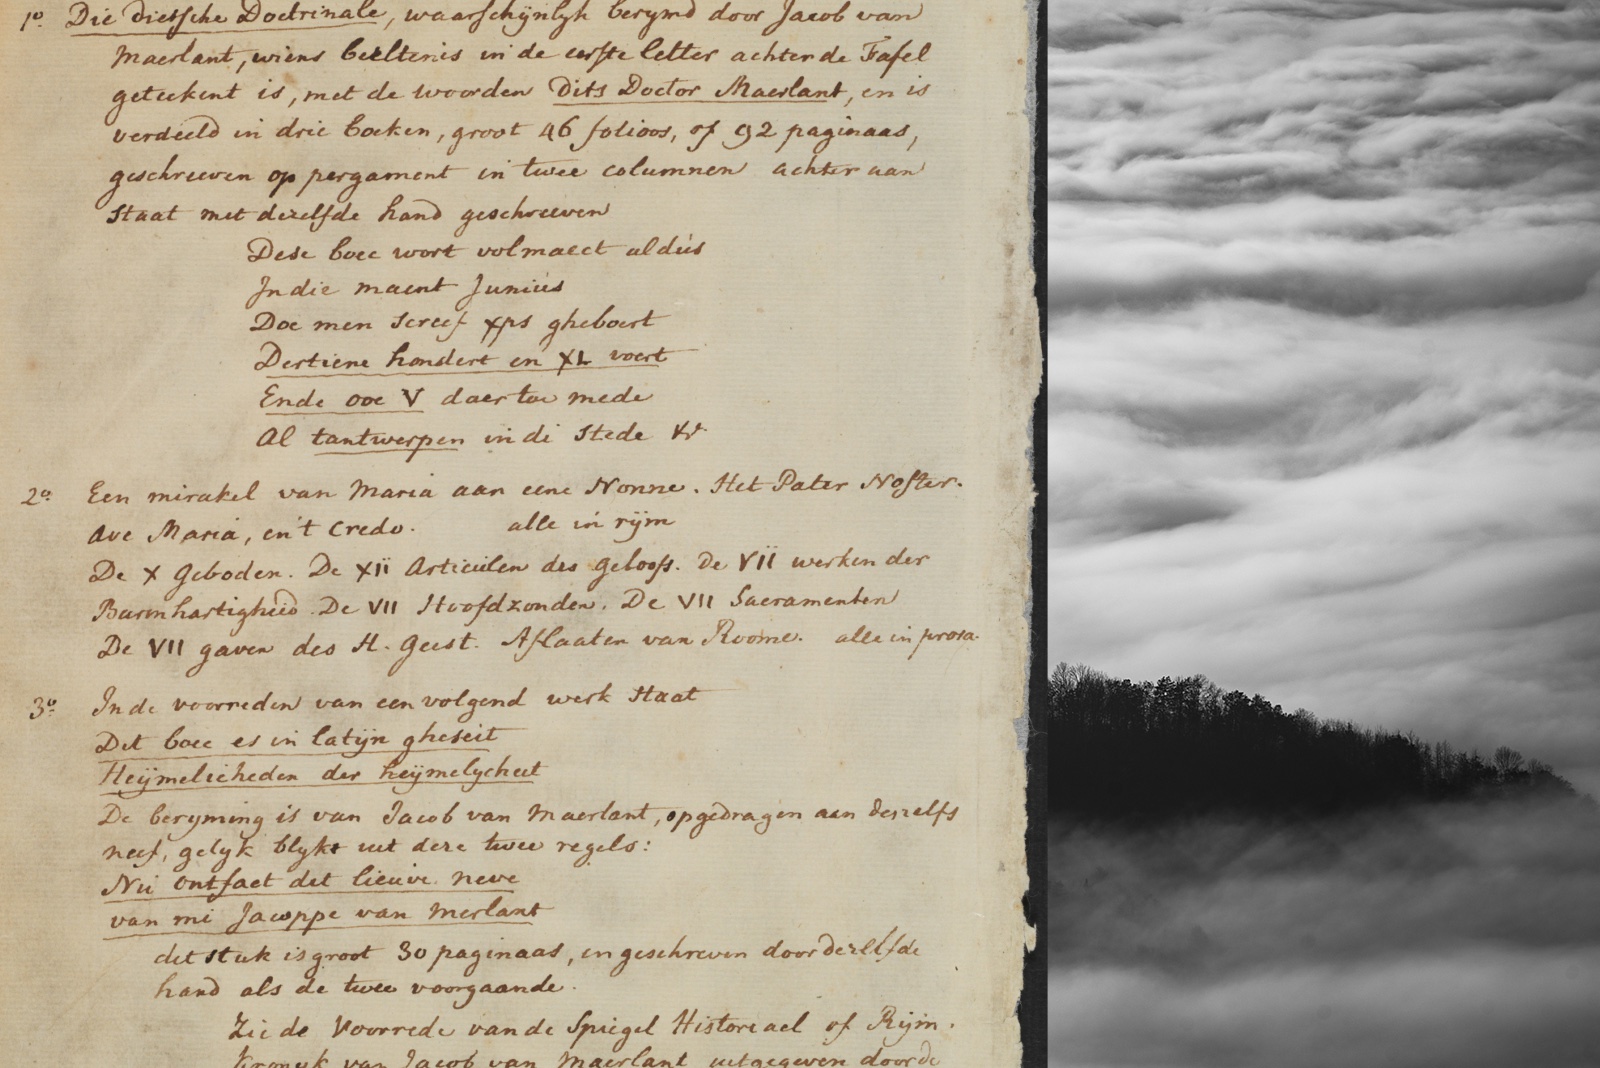 1º Die dietsche Doctrinale, waarschijnlyk berymd door Jacob van
Maerlant, wiens beeltenis in de eerste letter achter de Tafel
geteekent is, met de woorden Dits Doctor Maerlant, en is
verdeeld in drie boeken, groot 46 folioos, of 92 paginaas,
geschreeven op pergament in twee columnen achter aan
staat met dezelfde hand geschreeven
Dese boec wort volmaect aldus
In die maent Junius
Doe men screef xps gheboert
Dertiene hondert en XL voert
Ende ooc V daer toe mede
Al tantwerpen in di stede
2º Een mirakel van Maria aan eene Nonne. Het Pater Noster.
Ave Maria, en't Credo. alle in rijm
De X Geboden. De XII Articulen des geloofs. De VII werken der
Barmhartigheid. De VII Hoofdzonden. De VII Sacramenten
De VII gaven des H. Geest. Aflaaten van Roome. alle in prosa.
3º In de voorreden van een volgend werk staat
Dit boec es in latijn gheseit
Heijmelicheden der heijmelycheit
De beryming is van Jacob van Maerlant, opgedragen aan deszelfs
neef, gelyk blykt uit deze twee regels:
Nu ontfaet dit lieuve neve
van mi Jacoppe van Merlant
dit stuk is groot 30 paginaas, en geschreven door dezelfde
hand als de twee voorgaande.
Zie de Voorrede van de Spiegel Historiael of Rijm.
Kronyk van Jacob van Maerlant uitgegeven door de